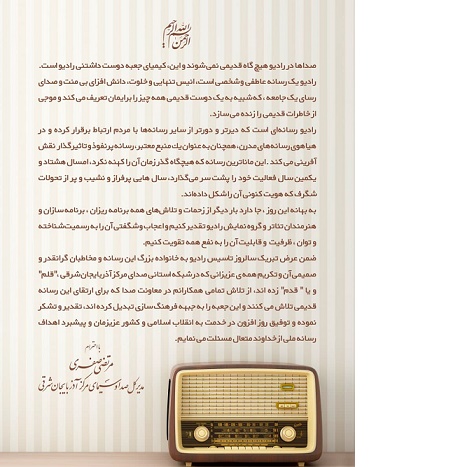 بسم الله الرحمن الرحیم
صداها در رادیو هیچ گاه قدیمی نمی‌شوند و این، کیمیای جعبه دوست داشتنی رادیو است.
رادیو یک رسانه عاطفی و شخصی است، انیس تنهایی و خلوت، دانش افزای بی منت و صدای
رسای یک جامعه ، که شبیه به یک دوست قدیمی همه چیز را برایمان تعریف می کند و موجی
از خاطرات قدیمی را زنده می‌سازد.
رادیو رسانه‌ای است که دیرتر و دورتر از سایر رسانه‌ها با مردم ارتباط برقرار کرده و در
هیاهوی رسانه‌های مدرن، همچنان به عنوان یک منبع معتبر، رسانه پرنفوذ و تاثیرگذار نقش
آفرینی می کند . این ماناترین رسانه که هیچگاه گذر زمان آن را کهنه نکرد، امسال هشتاد و
یکمین سال فعالیت خود را پشت سر می‌گذارد، سال هایی پرفراز و نشیب و پر از تحولات
شگرف که هویت کنونی آن را شکل داده‌اند.
به بهانه این روز ، جا دارد بار دیگر از زحمات و تلاش‌های همه برنامه ریزان ، برنامه سازان و
هنرمندان تئاتر و گروه نمایش رادیو تقدیر کنیم و اعجاب و شگفتی آن را به رسمیت شناخته
و توان ، ظرفیت و قابلیت آن را به نفع همه تقویت کنیم.
ضمن عرض تبریک سالروز تاسیس رادیو به خانواده بزرگ این رسانه و مخاطبان گرانقدر و
صمیمی آن و تکریم همه ی عزیزانی که در شبکه استانی صدای مرکز آذربایجان شرقی ، "قلم"
و یا " قدم" زده اند، از تلاش تمامی همکارانم در معاونت صدا که برای ارتقای این رسانه
قدیمی تلاش می کنند و این جعبه را به جبهه فرهنگ سازی تبدیل کرده اند، تقدیر و تشکر
نموده و توفیق روز افزون در خدمت به انقلاب اسلامی و کشور عزیزمان و پیشبرد اهداف
رسانه ملی از خداوند متعال مسئلت می نمایم.
با احترام
مرتضی صفری
مدیرکل صدا و سیمای مرکز آذربایجان شرقی